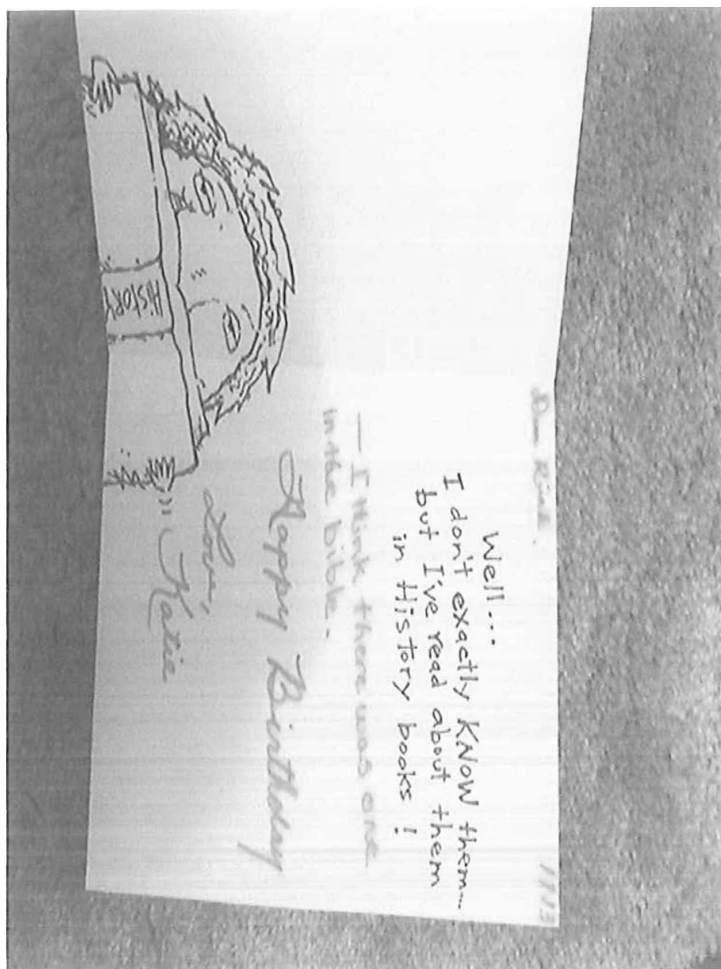 HISTORY
Dear Rick,
Well...
I don't exactly KNOW them...
but I've read about them
in History books !
— I think there was one
in the bible.
Happy Birthday
Love,
Katie